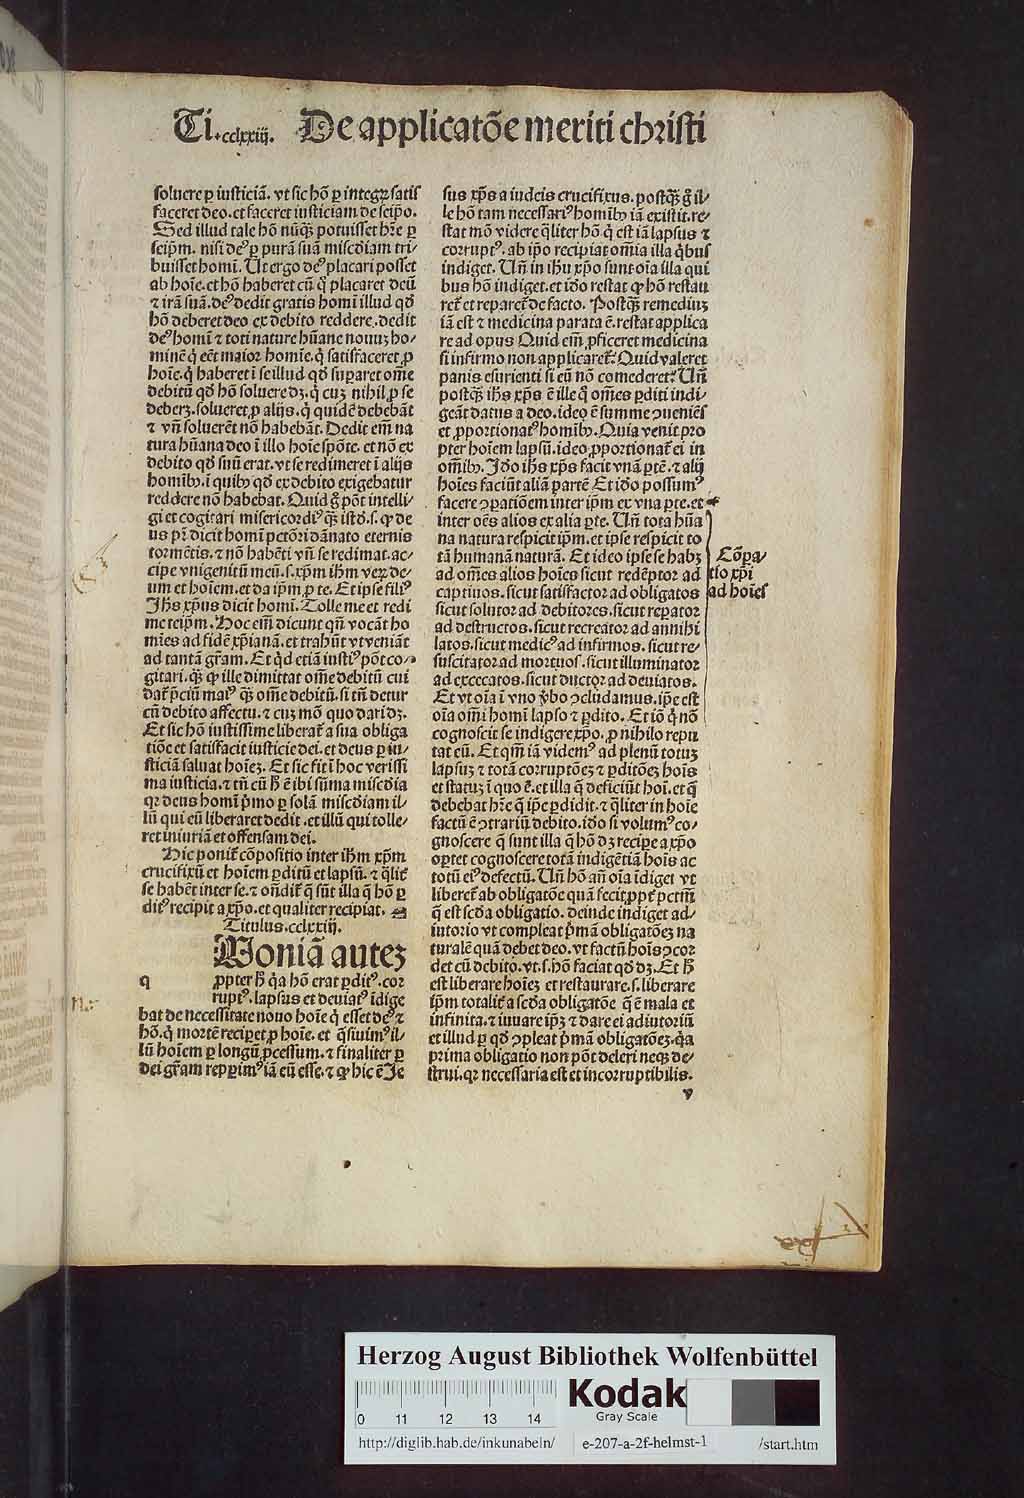 Ti.cclxxiij. De applicatõe meriti christi
soluere ꝑ iusticiã. vt sic hõ ꝑ integrꝫ satis
faceret deo. et faceret iusticiam de seip̃o.
Sed illud tale hõ nũqꝫ potuisset hr̃e ꝑ
seip̃m. nisi deꝰ ꝑ purã suã misc̃diam tri/
buisset homĩ. Ut ergo deꝰ placari posset
ab hoĩe. et hõ haberet cũ q̃ placaret deũ
⁊ irã suã. deꝰ dedit gratis homĩ illud qď
hõ deberet deo ex debito reddere. dedit
deꝰ homĩ ⁊ toti nature hũane nouuꝫ ho/
minẽ q̃ eẽt maior homĩe. q̃ satisfaceret ꝓ
hoĩe. q̃ haberet ĩ se illud qď suꝑaret om̃e
debitũ qď hõ soluere dꝫ. q̃ cuꝫ nihil ꝓ se
deberꝫ. solueret ꝓ alijs. q̃ quidẽ debebãt
⁊ vñ soluerẽt nõ habebãt. Dedit em̃ na
tura hũana deo ĩ illo hoĩe spõte. et nõ ex
debito qď suũ erat. vt se redimeret ĩ alijs
homĩbꝰ. ĩ quibꝰ qď ex debito exigebatur
reddere nõ habebat. Quid g̃ põt intelli/
gi et cogitari misericordiꝰ qꝫ istď. s. ꝙ de
us pr̃ dicit homĩ pctõri dãnato eternis
tormẽtis. ⁊ nõ habẽti vñ se redimat. ac/
cipe vnigenitũ meũ. s. xp̃m ih̃m verꝫ de/
um et hoĩem. et da ip̃m ꝓ te. Et ipse filiꝰ
Jh̃s xp̃us dicit homĩ. Tolle me et redi
me teip̃m. Hoc em̃ dicunt qñ vocãt ho
mĩes ad fidẽ xp̃ianã. et trahũt vt veniãt
ad tantã gr̃am. Et q̃d etiã iustiꝰ põt co/
gitari. qꝫ ꝙ ille dimittat om̃e debitũ cui
dat̃ p̃ciũ maiꝰ qꝫ om̃e debitũ. si tñ detur
cũ debito affectu. ⁊ cuꝫ mõ quo dari dꝫ.
Et sic hõ iustissime liberat̃ a sua obliga
tiõe et satisfacit iusticie dei. et deus ꝑ iu/
sticiã saluat hoĩeꝫ. Et sic fit ĩ hoc verissi
ma iusticia. ⁊ tñ cũ h̃ ẽ ibi sũma misc̃dia
qꝛ deus homĩ p̃mo ꝑ solã misc̃diam il/
lũ qui eũ liberaret dedit. et illũ qui tolle/
ret iniuriã et offensam dei.
Hic ponit̃ cõpositio inter ih̃m xp̃m
crucifixũ et hoĩem ꝑditũ et lapsũ. ⁊ q̃lit̃
se habẽt inter se. ⁊ oñdit̃ q̃ sũt illa q̃ hõ ꝑ
ditꝰ recipit a xp̃o. et qualiter recipiat.
Titulus. cclxxiij.
q
Woniã auteꝫ
ꝓpter h̃ q̃a hõ erat ꝑditꝰ. cor
ruptꝰ. lapsus et deuiatꝰ ĩdige
bat de necessitate nouo hoĩe q̃ esset deꝰ ⁊
hõ. q̃ mortẽ reciperet ꝓ hoĩe. et q̃siuimꝰ il/
lũ hoĩem ꝑ longũ ꝓcessum. ⁊ finaliter ꝑ
dei gr̃am repꝑimꝰ iã eũ esse. ⁊ ꝙ hic ẽ Je
sus xp̃s a iudeis crucifixus. postqꝫ g̃ il/
le hõ tam necessariꝰ homĩbꝰ iã existit. re/
stat mõ videre q̃liter hõ q̃ est iã lapsus ⁊
corruptꝰ. ab ip̃o recipiat om̃ia illa q̃bus
indiget. Uñ in ih̃u xp̃o sunt oĩa illa qui
bus hõ indiget. et iďo restat ꝙ hõ restau
ret̃ et reparet̃ de facto. Postqꝫ remediuꝫ
iã est ⁊ medicina parata ẽ. restat applica
re ad opus Quid em̃ ꝓficeret medicina
si infirmo non applicaret̃. Quid valeret
panis esurienti si eũ nõ comederet. Uñ
postqꝫ ih̃s xp̃s ẽ ille q̃ om̃es ꝑditi indi/
geãt datus a deo. ideo ẽ summe ꝯueniẽs
et ꝓportionatꝰ homĩbꝰ. Quia venit pro
pter hoĩem lapsũ. ideo ꝓportionat̃ ei in
om̃ibꝰ. Jďo ih̃s xp̃s facit vnã ꝑtẽ. ⁊ alij
hoĩes faciũt aliã partẽ Et iďo possumꝰ
facere ꝯꝑatiõem inter ip̃m ex vna ꝑte. et
inter oẽs alios ex alia ꝑte. Uñ tota hũa
na natura respicit ip̃m. et ipse respicit to
tã humanã naturã. Et ideo ipse se habꝫ
ad om̃es alios hoĩes sicut redẽptor ad
captiuos. sicut satisfactor ad obligatos
sicut solutor ad debitores. sicut reꝑator
ad destructos. sicut recreator ad annihi
latos. sicut medicꝰ ad infirmos. sicut re/
suscitator ad mortuos. sicut illuminator
ad excecatos. sicut ductor ad deuiatos.
Et vt oĩa ĩ vno ṽbo ꝯcludamus. ip̃e est
oĩa om̃i homĩ lapso ⁊ ꝑdito. Et iõ q̃ nõ
cognoscit se indigere xp̃o. ꝓ nihilo repu
tat eũ. Et qm̃ iã videmꝰ ad plenũ totuꝫ
lapsuꝫ ⁊ totã corruptõeꝫ ⁊ ꝑditõeꝫ hoĩs
et statuꝫ ĩ quo ẽ. et illa q̃ deficiũt hoĩ. et q̃
debebat hr̃e q̃ ip̃e ꝑdidit. ⁊ q̃liter in hoĩe
factũ ẽ ꝯtrariũ debito. iďo si volumꝰ co/
gnoscere q̃ sunt illa q̃ hõ dꝫ reciꝑe a xp̃o
oꝑtet cognoscere totã indigẽtiã hoĩs ac
totũ eiꝰ defectũ. Uñ hõ añ oĩa ĩdiget vt
liberet̃ ab obligatõe quã fecit ꝓpt̃ pctm̃
q̃ est sc̃da obligatio. deinde indiget ad/
iutorio vt compleat p̃mã obligatõeꝫ na
turalẽ quã debet deo. vt factũ hoĩs ꝯcor
det cũ debito. vt. s. hõ faciat qď dꝫ. Et h̃
est liberare hoĩeꝫ et restaurare. s. liberare
ip̃m totalit̃ a sc̃da obligatõe q̃ ẽ mala et
infinita. ⁊ iuuare ip̃ꝫ ⁊ dare ei adiutoriũ
et illud ꝑ qď ꝯpleat p̃mã obligatõeꝫ. q̃a
prima obligatio non põt deleri neqꝫ de/
strui. qꝛ necessaria est et incorruptibilis.
v
Cõpa/
tio xp̃i
ad hoĩes
Herzog August Bibliothek Wolfenbüttel
Kodak
Gray Scale
0 11 12 13 14
http://diglib.hab.de/inkunabeln/ e-207-a-2f-helmst-1 /start.htm